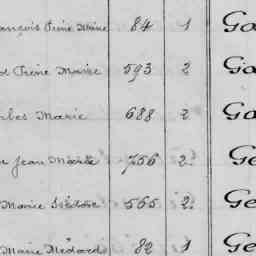 ançois Pierre Marie 84 1 Ga
Pierre Marie 593 2 Ga
Marie 688 2 Ga
Jean Marie 756 2 Ge
Marie Isidore 565 2 Ge
Marie Médard 82 1 Ge